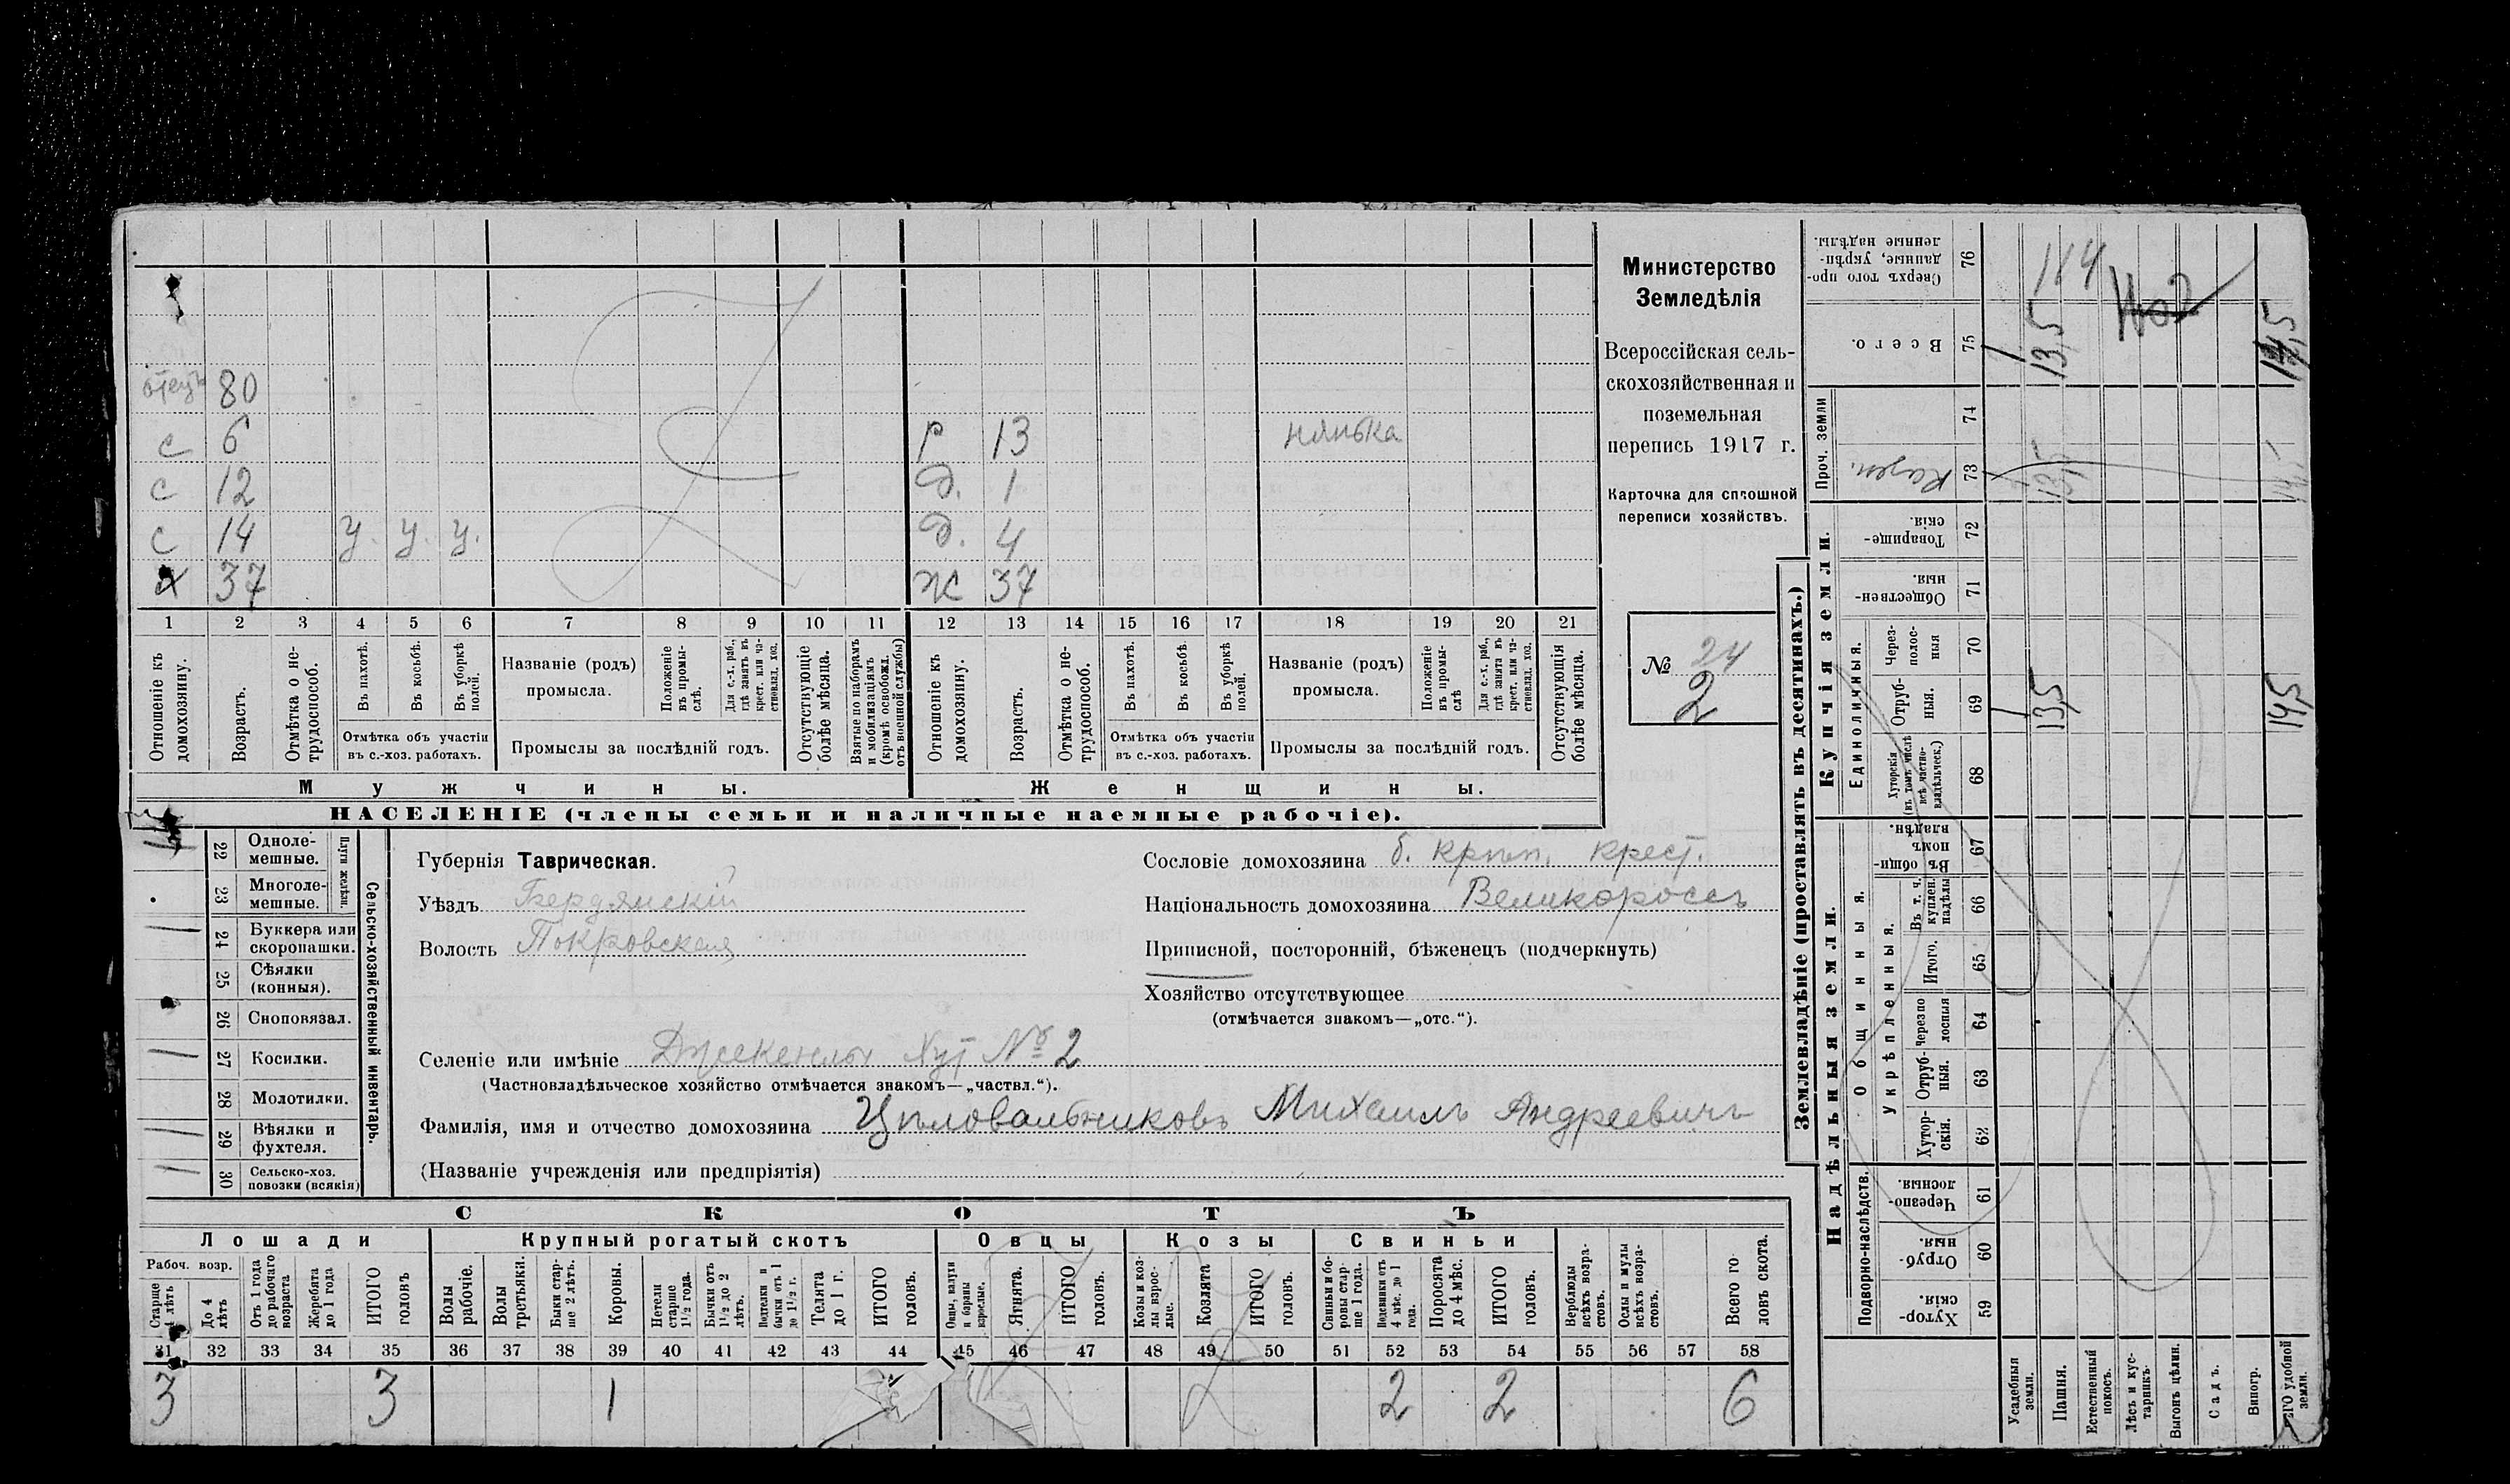 отецъ 80
с 6 р 13 нянька
с 12 д. 1
с 14 у. у. у. д. 4
х 37 ж 37
1 2 3 4 5 6 7 8 9 10 11 12 13 14 15 16 17 18 19 20 21
Отношеніе къ домохозяину.
Возрастъ.
Отмѣтка о не-трудоспособ.
Въ пахотѣ.
Въ косьбѣ.
Въ уборкѣ полей.
Отмѣтка объ участіи
въ с.-хоз. работахъ.
Названіе (родъ)
промысла.
Положеніе въ промы-слѣ.
Для с.-х. раб., гдѣ занятъ въ крест. или ча-стновлад. хоз.
Промыслы за послѣдній годъ.
Отсутствующіе болѣе мѣсяца.
Взятые по наборамъ и мобилизаціямъ (кромѣ освобожд. отъ военной службы)
Отношеніе къ домохозяину.
Возрастъ.
Отмѣтка о не-трудоспособ.
Въ пахотѣ.
Въ косьбѣ.
Въ уборкѣ полей.
Отмѣтка объ участіи
въ с.-хоз. работахъ.
Названіе (родъ)
промысла.
Положеніе въ промы-слѣ
Для с.-х. раб., гдѣ занята въ крест. или ча-стновлад. хоз.
Промыслы за послѣдній годъ.
Отсутствующія болѣе мѣсяца.
Мужчины.
Женщины.
НАСЕЛЕНІЕ (члены семьи и наличные наемные рабочіе).
Министерство
Земледѣлія
Всероссійская сель-
скохозяйственная и
поземельная
перепись 1917 г.
Карточка для сплошной
переписи хозяйствъ.
№ 24
2
22 Одноле-мешные.
23 Многоле-мешные.
Плуги желѣзн.
24 Буккера или скоропашки.
25 Сѣялки (конныя).
26 Сноповязал.
27 Косилки.
28 Молотилки.
29 Вѣялки и фухтеля.
30 Сельско-хоз. повозки (всякія)
Сельско-хозяйственный инвентарь.
Губернія Таврическая.
Уѣздъ Бердянскій
Волость Покровская
Сословіе домохозяина б. крѣп. крест.
Національность домохозяина Великороссъ
Приписной, посторонній, бѣженецъ (подчеркнуть)
Хозяйство отсутствующее
(отмѣчается знакомъ—„отс.“).
Селеніе или имѣніе Хут № 2
(Частновладѣльческое хозяйство отмѣчается знакомъ—„частвл.“).
Фамилія, имя и отчество домохозяина Цѣловальниковъ Михаилъ Андреевичъ
(Названіе учрежденія или предпріятія)
СКОТЪ
Лошади Крупный рогатый скотъ Овцы Козы Свиньи
Рабоч. возр.
Старше 4 лѣтъ
До 4 лѣтъ
Отъ 1 года до рабочаго возраста
Жеребята до 1 года
ИТОГО головъ
Волы рабочіе.
Волы третьяки.
Быки стар-ше 2 лѣтъ.
Коровы.
Нетели старше 1½ года.
Бычки отъ 1½ до 2 лѣтъ.
Подтелки и бычки отъ 1 до 1½ г.
Телята до 1 г.
ИТОГО головъ.
Овцы, валухи и бараны взрослые.
Ягнята.
ИТОГО головъ.
Козы и коз-лы взрос-лые.
Козлята
ИТОГО головъ.
Свиньи и бо-ровы стар-ше 1 года.
Подсвинки отъ 4 мѣс. до 1 года.
Поросята до 4 мѣс.
ИТОГО головъ.
Верблюды всѣхъ возра-стовъ.
Ослы и мулы всѣхъ возра-стовъ.
Всего го-ловъ скота.
31 32 33 34 35 36 37 38 39 40 41 42 43 44 45 46 47 48 49 50 51 52 53 54 55 56 57 58
3 3 1 2 2 6
Землевладѣніе (проставлять въ десятинахъ.)
Сверхъ того про-данные, укрѣп-ленные надѣлы. 76
Всего. 75 13,5
Проч. земли
74
Казен. 73
Купчія земли.
Товарище-скія. 72
Обществен-ныя. 71
Единоличныя.
Через-полос-ныя 70
Отруб-ныя. 69 13,5 14,5
Хуторскія (въ томъ числѣ всѣ частно-владѣльческ.) 68
Надѣльныя земли.
Общинныя.
Въ общин-номъ владѣн. 67
Укрѣпленныя.
Въ т. ч. куплен. надѣлы 66
Итого. 65
Черезпо-лосныя 64
Отруб-ныя. 63
Хутор-скія. 62
Подворно-наслѣдств.
Черезпо-лосныя. 61
Отруб-ныя. 60
Хутор-скія. 59
Усадебныя земли.
Пашня.
Естественный покосъ.
Лѣсъ и кус-тарникъ.
Выгонъ цѣлин.
Садъ.
Виногр.
удобной земли.